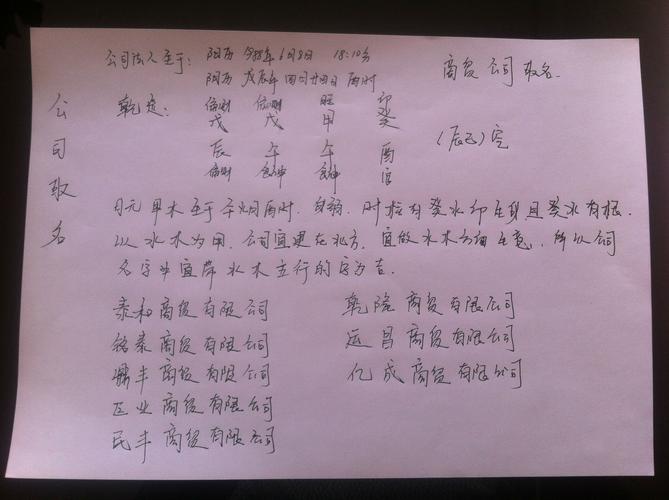 公司取名
商贸公司取名
公司法人生于: 阳历 年6月8日 18:10分
阴历 戊辰年 四月廿四日 酉时
乾造:
偏财 偏财 印
戊 戊 甲 癸
(辰巳)空
辰 午 午 酉
偏财 食神 食神 官
日元甲木生于午月酉时. 身弱. 时柱有癸水印生身, 且癸水有根.
以水木为用. 公司宜建在北方. 宜做水木方面生意, 所以公司
名字 宜带水木五行的字为吉.
泰和商贸有限公司
铭泰商贸有限公司
鼎丰商贸有限公司
正业商贸有限公司
民丰商贸有限公司
乾隆商贸有限公司
运昌商贸有限公司
亿成商贸有限公司